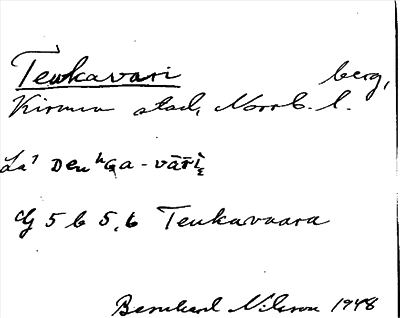 Teukavari berg,
Kiruna stad, Norrb. l.
Laˀ DeuʰGa-vāri
G 5 b 5,6 Teukavaara
Bernhard Nilsson 1948